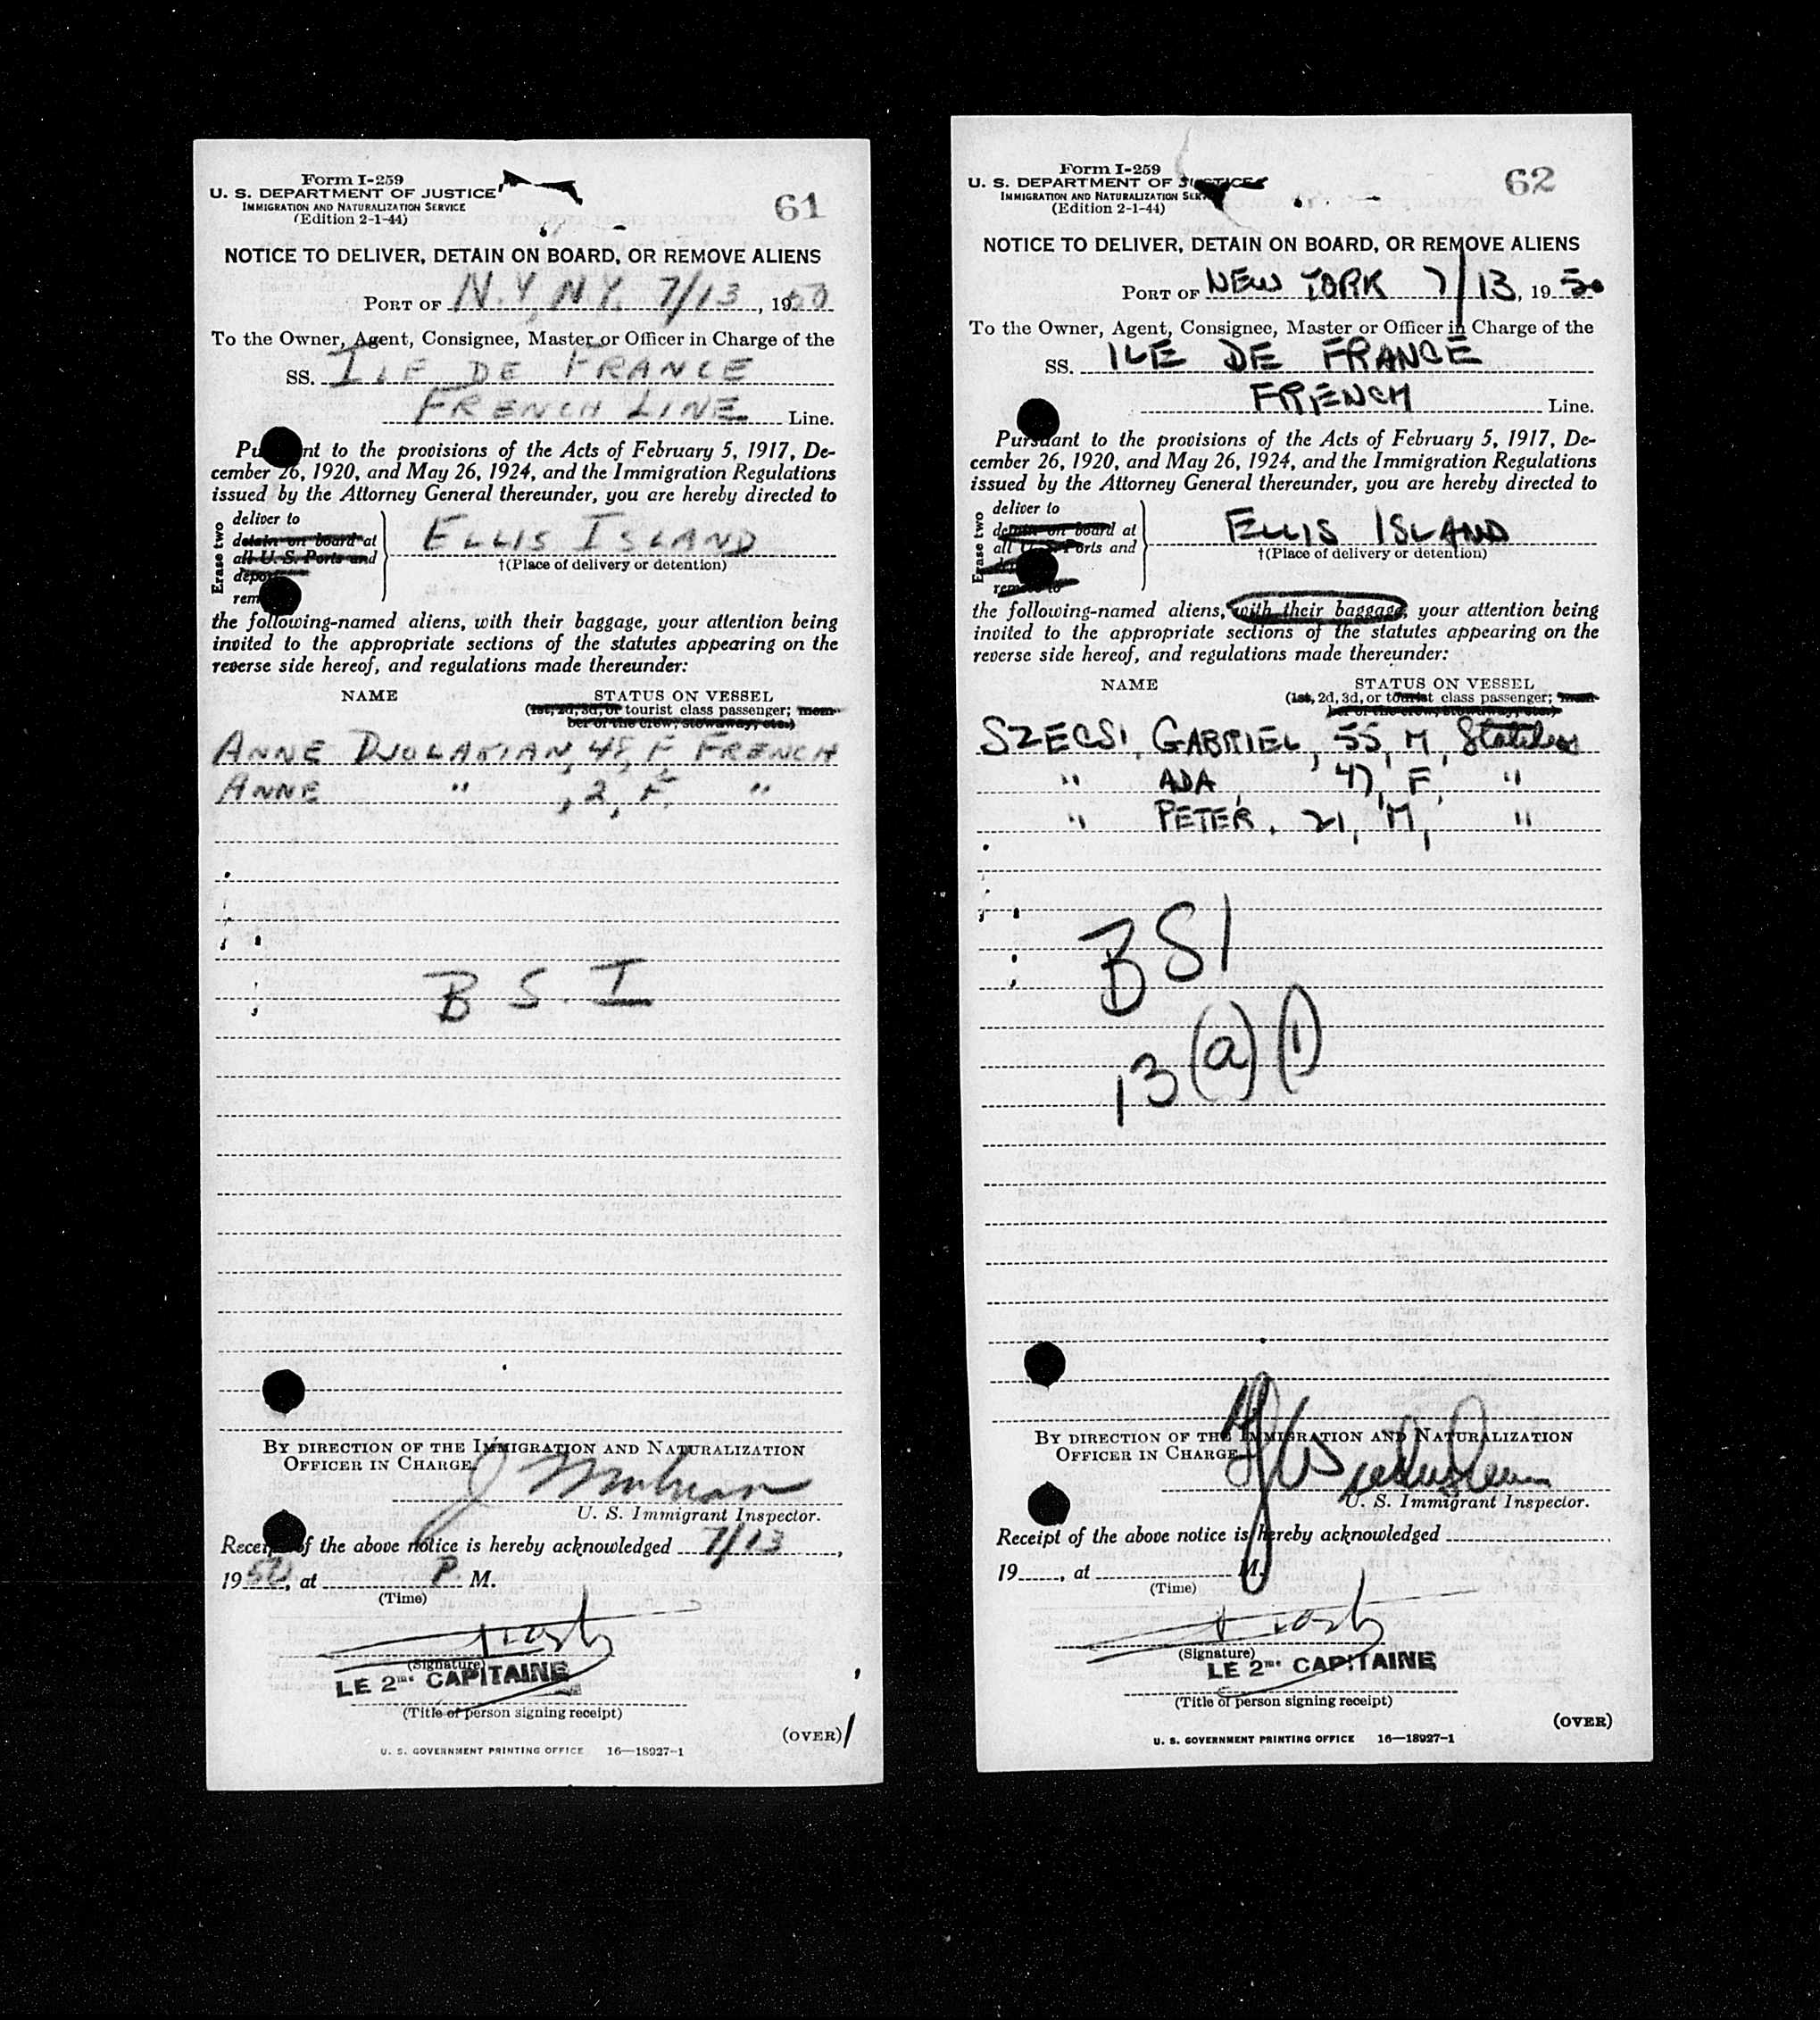 Form I-259
U. S. DEPARTMENT OF JUSTICE
IMMIGRATION AND NATURALIZATION SERVICE
(Edition 2-1-44)
61
NOTICE TO DELIVER, DETAIN ON BOARD, OR REMOVE ALIENS
PORT OF N.Y, N.Y. 7/13, 1950
To the Owner, Agent, Consignee, Master or Officer in Charge of the
SS. ILE DE FRANCE
FRENCH LINE Line.
Pursuant to the provisions of the Acts of February 5, 1917, De-
cember 26, 1920, and May 26, 1924, and the Immigration Regulations
issued by the Attorney General thereunder, you are hereby directed to
Erase two
deliver to
detain on board at
all U. S. Ports and
deport
rem
ELLIS ISLAND
†(Place of delivery or detention)
the following-named aliens, with their baggage, your attention being
invited to the appropriate sections of the statutes appearing on the
reverse side hereof, and regulations made thereunder:
NAME STATUS ON VESSEL
(1st, 2d, 3d, or tourist class passenger; mem-
ber of the crew; stowaway, etc.)
ANNE DJOLAKIAN, 48, F, FRENCH
ANNE " , 2, F. "
B S. I
BY DIRECTION OF THE IMMIGRATION AND NATURALIZATION
OFFICER IN CHARGE
U. S. Immigrant Inspector.
Receipt of the above notice is hereby acknowledged 7/13,
1950, at P. M.
(Time)
(Signature)
LE 2me CAPITAINE
(Title of person signing receipt)
(OVER)
U. S. GOVERNMENT PRINTING OFFICE 16—18927-1
Form I-259
U. S. DEPARTMENT OF JUSTICE
IMMIGRATION AND NATURALIZATION SERV
(Edition 2-1-44)
62
NOTICE TO DELIVER, DETAIN ON BOARD, OR REMOVE ALIENS
PORT OF NEW YORK 7/13, 1950
To the Owner, Agent, Consignee, Master or Officer in Charge of the
SS. ILE DE FRANCE
FRENCH Line.
Pursuant to the provisions of the Acts of February 5, 1917, De-
cember 26, 1920, and May 26, 1924, and the Immigration Regulations
issued by the Attorney General thereunder, you are hereby directed to
Erase two
deliver to
detain on board at
all U. S. Ports and
remove to
ELLIS ISLAND
†(Place of delivery or detention)
the following-named aliens, with their baggage, your attention being
invited to the appropriate sections of the statutes appearing on the
reverse side hereof, and regulations made thereunder:
NAME STATUS ON VESSEL
(1st, 2d, 3d, or tourist class passenger; mem-
ber of the crew; stowaway, etc.)
SZECSI, GABRIEL, 55, M, Stateless
" ADA, 47, F, "
" PETER, 21, M, "
BSI
13(a)(1)
BY DIRECTION OF THE IMMIGRATION AND NATURALIZATION
OFFICER IN CHARGE
U. S. Immigrant Inspector.
Receipt of the above notice is hereby acknowledged
19 , at M.
(Time)
(Signature)
LE 2me CAPITAINE
(Title of person signing receipt)
(OVER)
U. S. GOVERNMENT PRINTING OFFICE 16—18927-1